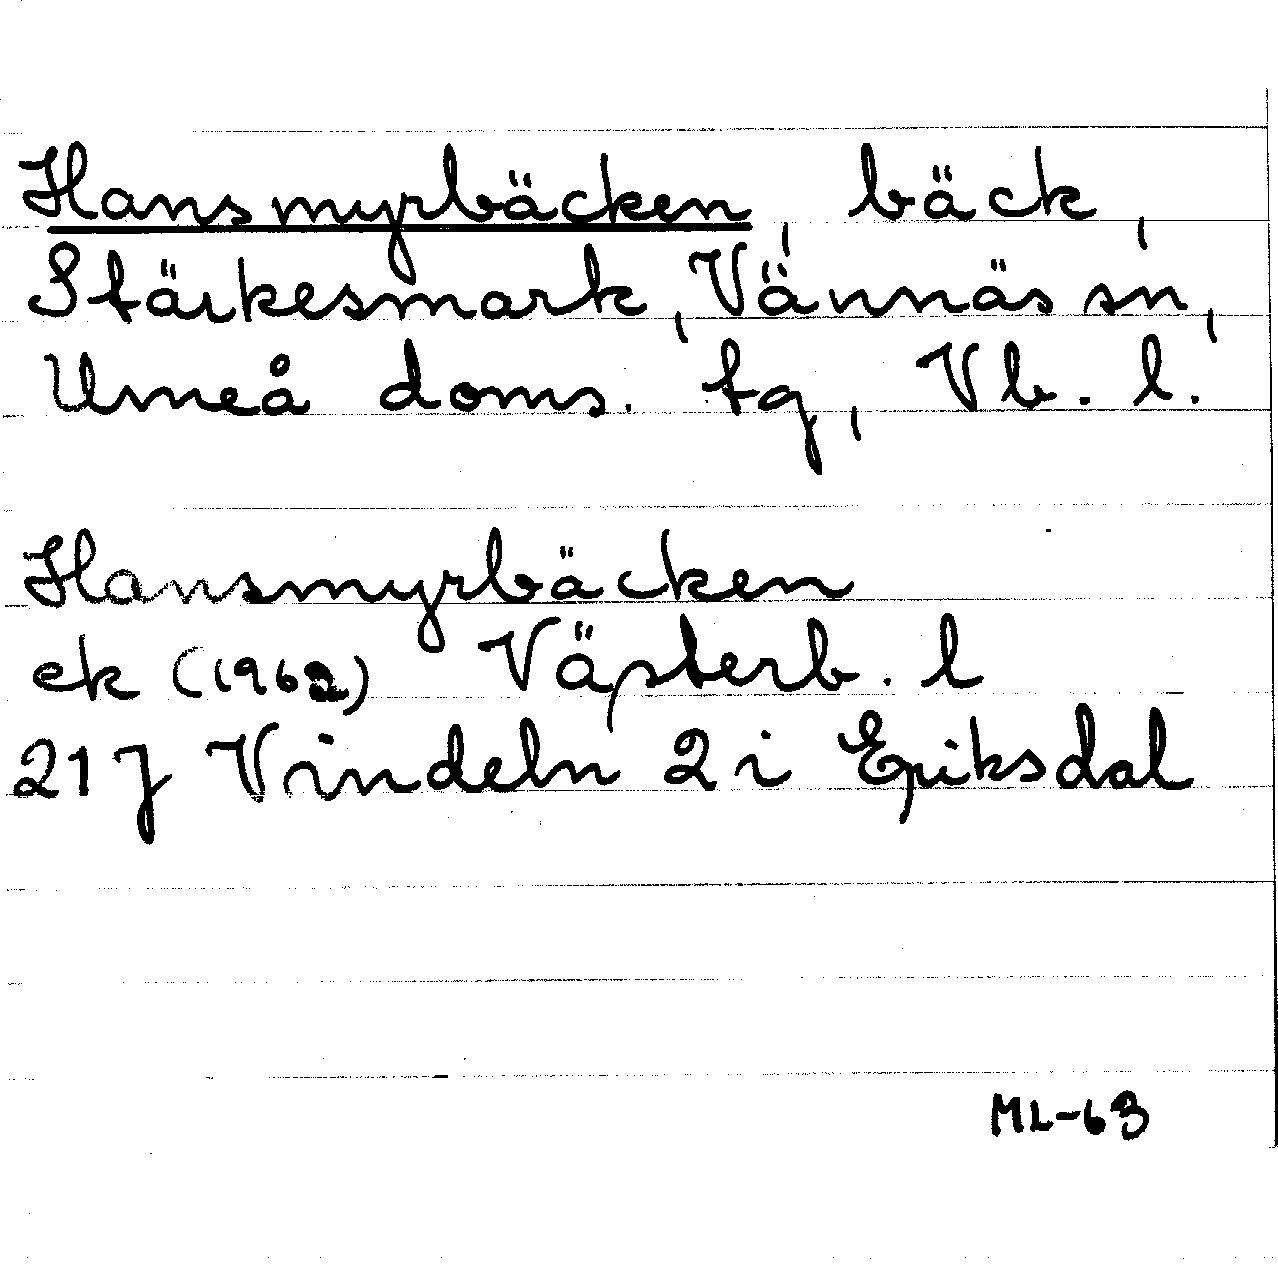 Hansmyrbäcken, bäck,
Stärkesmark, Vännäs sn,
Umeå doms. tg, Vb. l.
Hansmyrbäcken
ek (1962) Västerb. l
21 J Vindeln 2 i Eriksdal
ML-63